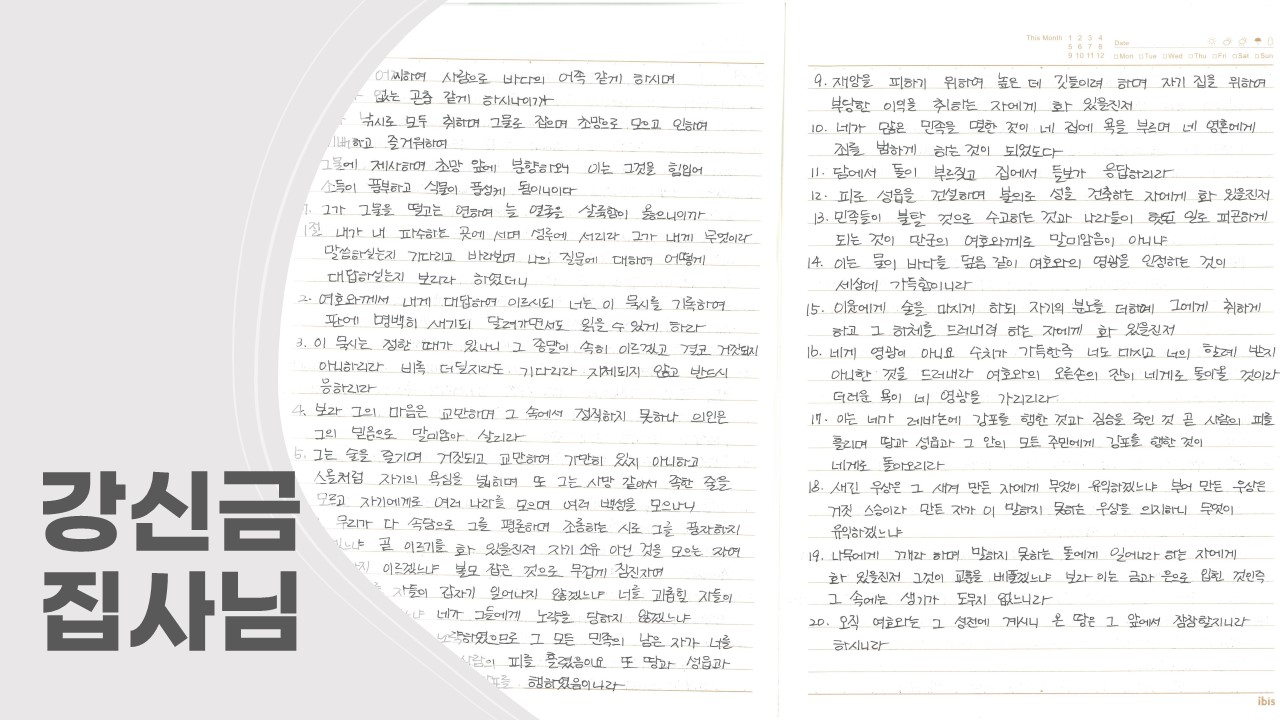 어찌하여 사람으로 바다의 어족 같게 하시며
없는 곤충 같게 하시나이까
낚시로 모두 취하며 그물로 잡으며 초망으로 모으고 인하여
하고 즐거워하며
그물에 제사하며 초망 앞에 분향하오니 이는 그것을 힘입어
소득이 풍부하고 식물이 풍성케 됨이니이다
그가 그물을 떨고는 연하여 늘 열국을 살육함이 옳으니이까
1절 내가 내 파수하는 곳에 서며 성루에 서리라 그가 내게 무엇이라
말씀하실는지 기다리고 바라보며 나의 질문에 대하여 어떻게
대답하실는지 보리라 하였더니
2. 여호와께서 내게 대답하여 이르시되 너는 이 묵시를 기록하여
판에 명백히 새기되 달려가면서도 읽을 수 있게 하라
3. 이 묵시는 정한 때가 있나니 그 종말이 속히 이르겠고 결코 거짓되지
아니하리라 비록 더딜지라도 기다리라 지체되지 않고 반드시
응하리라
4. 보라 그의 마음은 교만하며 그 속에서 정직하지 못하나 의인은
그의 믿음으로 말미암아 살리라
5. 그는 술을 즐기며 거짓되고 교만하여 가만히 있지 아니하고
스올처럼 자기의 욕심을 넓히며 또 그는 사망 같아서 족한 줄을
모르고 자기에게로 여러 나라를 모으며 여러 백성을 모으나니
무리가 다 속담으로 그를 평론하며 조롱하는 시로 그를 풍자하지
곧 이르기를 화 있을진저 자기 소유 아닌 것을 모으는 자여
이르겠느냐 볼모 잡은 것으로 무겁게 짐진자여
자들이 갑자기 일어나지 않겠느냐 너를 괴롭힐 자들이
네가 그들에게 노략을 당하지 않겠느냐
노략하였으므로 그 모든 민족의 남은 자가 너를
사람의 피를 흘렸음이요 또 땅과 성읍과
행하였음이니라
강신금
집사님
This Month 1 2 3 4
5 6 7 8
9 10 11 12
Date
Mon Tue Wed Thu Fri Sat Sun
9. 재앙을 피하기 위하여 높은 데 깃들이려 하며 자기 집을 위하여
부당한 이익을 취하는 자에게 화 있을진저
10. 네가 많은 민족을 멸한 것이 네 집에 욕을 부르며 네 영혼에게
죄를 범하게 하는 것이 되었도다
11. 담에서 돌이 부르짖고 집에서 들보가 응답하리라
12. 피로 성읍을 건설하며 불의로 성을 건축하는 자에게 화 있을진저
13. 민족들이 불탈 것으로 수고하는 것과 나라들이 헛된 일로 피곤하게
되는 것이 만군의 여호와께로 말미암음이 아니냐
14. 이는 물이 바다를 덮음 같이 여호와의 영광을 인정하는 것이
세상에 가득함이니라
15. 이웃에게 술을 마시게 하되 자기의 분노를 더하여 그에게 취하게
하고 그 하체를 드러내려 하는 자에게 화 있을진저
16. 네게 영광이 아니요 수치가 가득한즉 너도 마시고 너의 할례 받지
아니한 것을 드러내라 여호와의 오른손의 잔이 네게로 돌아올 것이라
더러운 욕이 네 영광을 가리리라
17. 이는 네가 레바논에 강포를 행한 것과 짐승을 죽인 것 곧 사람의 피를
흘리며 땅과 성읍과 그 안의 모든 주민에게 강포를 행한 것이
네게로 돌아오리라
18. 새긴 우상은 그 새겨 만든 자에게 무엇이 유익하겠느냐 부어 만든 우상은
거짓 스승이라 만든 자가 이 말하지 못하는 우상을 의지하니 무엇이
유익하겠느냐
19. 나무에게 깨라 하며 말하지 못하는 돌에게 일어나라 하는 자에게
화 있을진저 그것이 교훈을 베풀겠느냐 보라 이는 금과 은으로 입힌 것인즉
그 속에는 생기가 도무지 없느니라
20. 오직 여호와는 그 성전에 계시니 온 땅은 그 앞에서 잠잠할지니라
하시니라
ibis